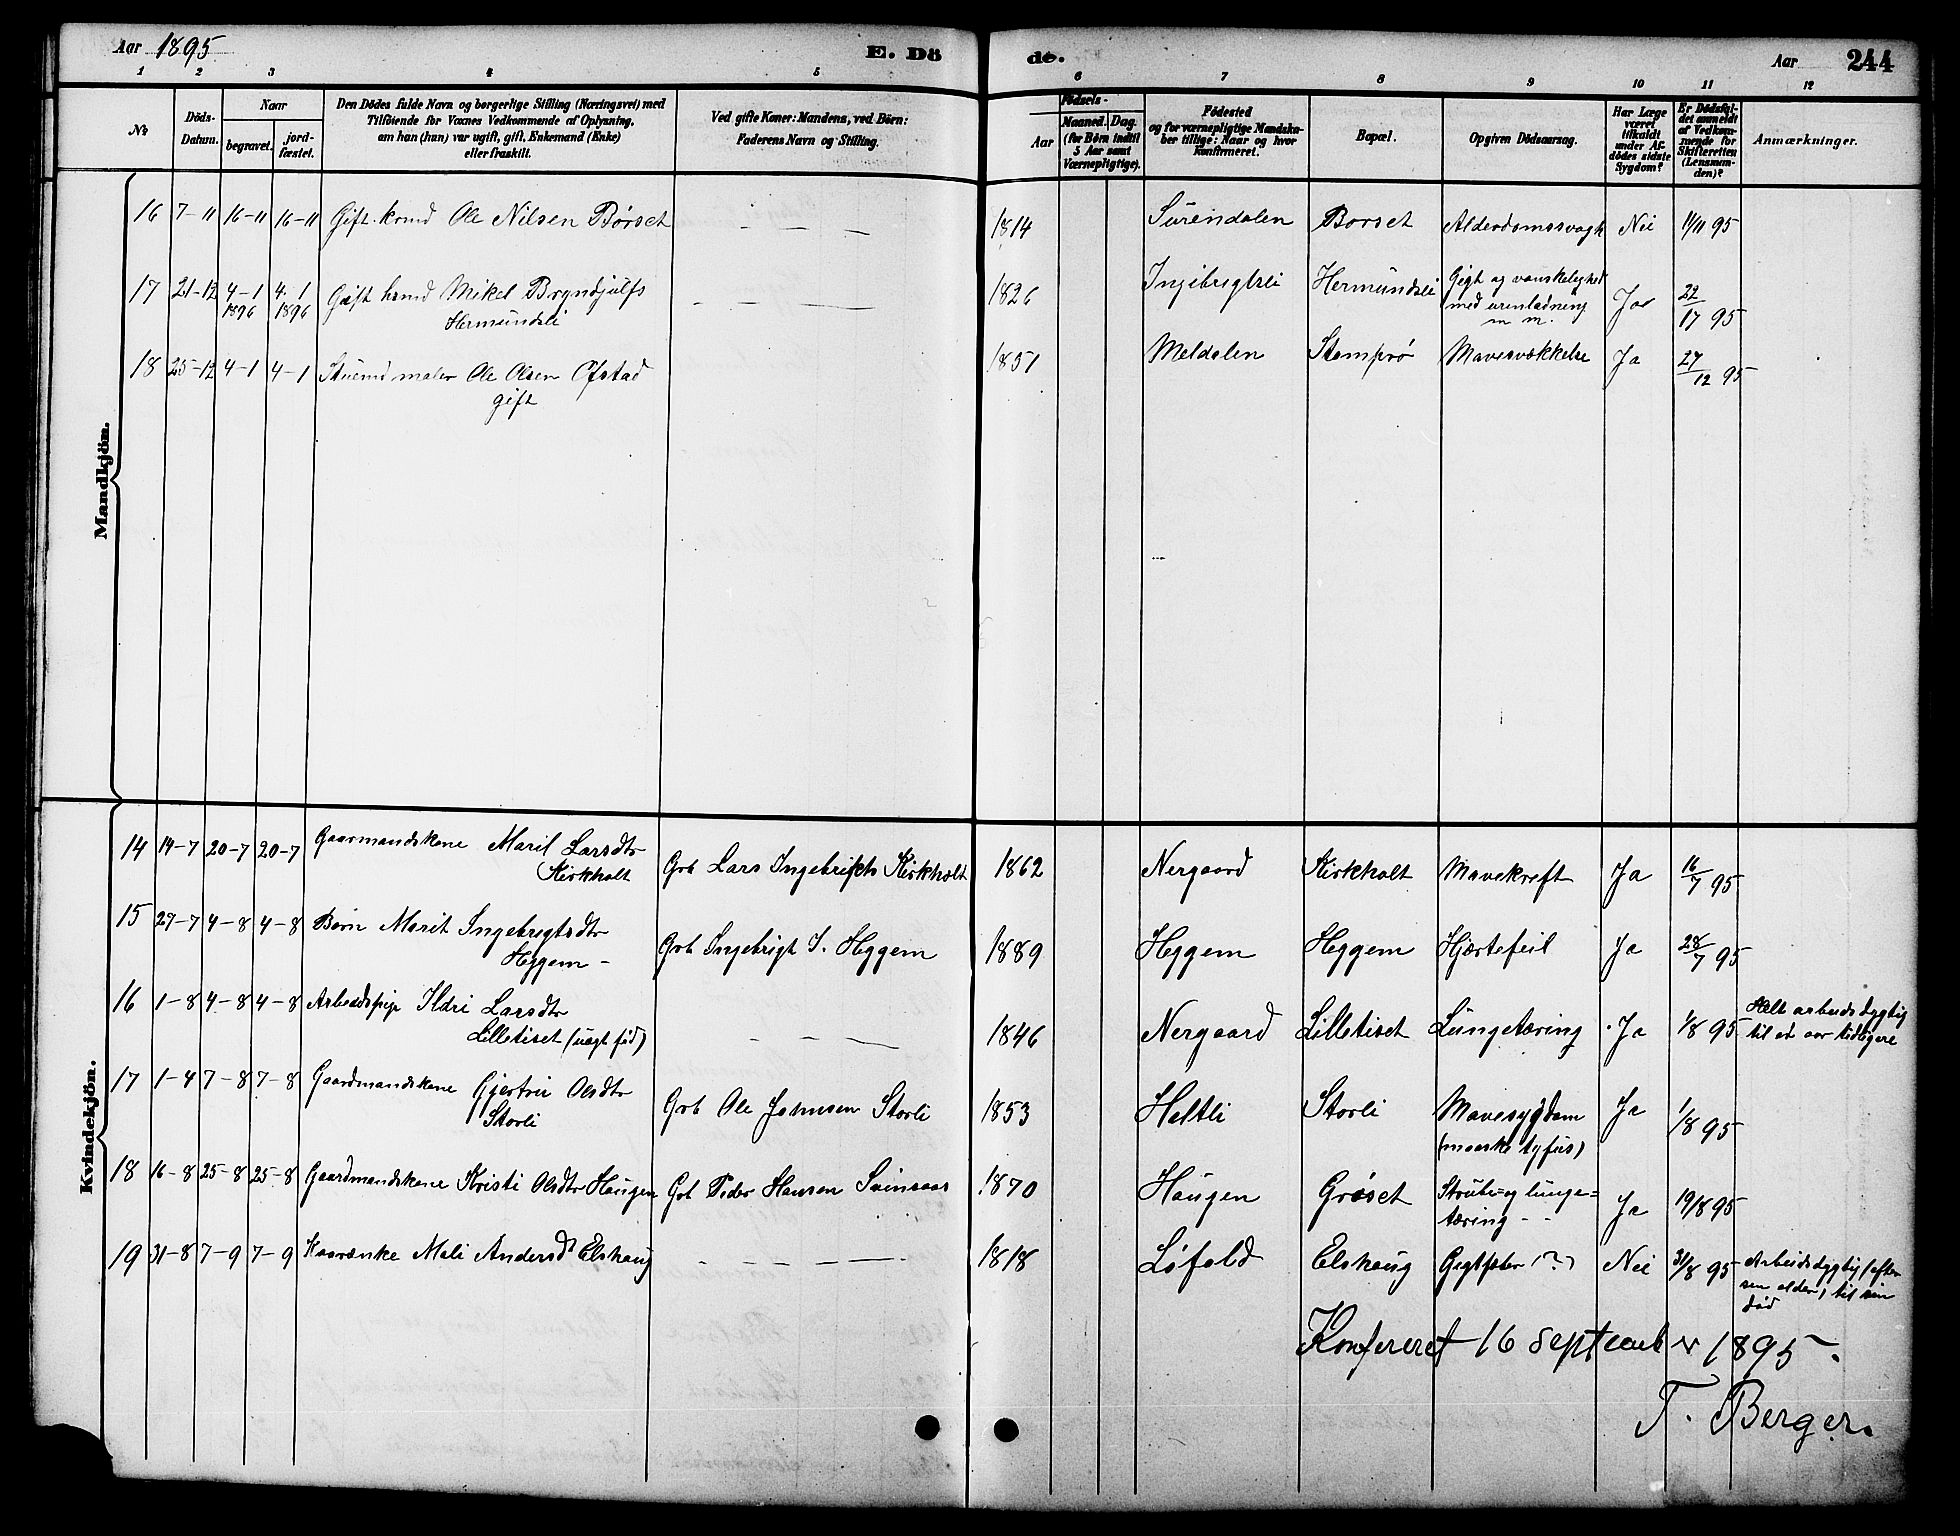 Aar 1895
E. Dö
de.
Aar 244
1 2 3 4 5 6 7 8 9 10 11 12
No
Döds-Datum.
Naar
begravet.
jord-fæstet.
Den Dödes fulde Navn og borgerlige Stilling (Næringsvei) med
Tilföiende for Voxnes Vedkommende af Oplysning,
om han (hun) var ugift, gift, Enkemand (Enke)
eller fraskilt.
Ved gifte Koner: Mandens, ved Börn:
Faderens Navn og Stilling.
Födsels-
Aar
Maaned. Dag.
(for Börn indtil
5 Aar samt
Værnepligtige).
Födested
og for værnepligtige Mandska-
ber tillige: Naar og hvor
Konfirmeret.
Bopæl.
Opgiven Dödsaarsag.
Har Læge
været
tilkaldt
under Af-
dödes sidste
Sygdom?
Er Dödsfal-
det anmeldt
af Vedkom-
mende for
Skifteretten
(Lensman-
den)?
Anmærkninger.
Mandkjön.
16 7-11 16-11 16-11 Gift kaarmd Ole Nilsen Børset — — — 1814 Surendalen Borset Alderdomssvagh Nei 11/11 95
17 21-12 4-1 1896 4-1 1896 Gift Mikel Bryndjulfs
Hermundsli — — — 1826 Ingibrigtsli Hermundsli Gigt og vanskelighed
med urenladning
m m. Ja 95
18 25-12 4-1 4-1 maler Ole Olsen Ofstad
gift 1851 Meldalen Stamprø Mavesvækkelse Ja 27/12 95
Kvindekjön.
14 14-7 20-7 20-7 Gaarmandskone Marit Larsdtr
Kirkholt Grb Lars Ingebrigts Kirkholt 1862 Nergaard Kirkholt Mavekreft Ja 16/7 95
15 27-7 4-8 4-8 Barn Marit Ingebrigtsdtr
Heggem - Grb Ingebrigt I. Heggem 1889 Heggem Heggem Hjærtefeil Ja 28/7 95
16 1-8 4-8 4-8 Arbeidspige Ildri Larsdtr
Lilletiset (uægt fød) — — — 1846 Nergaard Lilletiset Lungetæring Ja 1/8 95 Helt arbeidsdygtig
til et aar tidligere
17 1-4 7-8 7-8 Gaardmandskone Gjertru Olsdtr
Storli Grb Ole Johnsen Storli 1853 Heltli Storli Mavesygdom
(maaske tyfus) Ja 1/8 95
18 16-8 25-8 25-8 Gaardmandskone Kristi Olsdtr Haugen Grb Peder Hansen Svinsaas 1870 Haugen Grøset Strube- og lunge-
tæring - - Ja 19/8 95
19 31-8 7-9 7-9 Kaarenke Mali Andersdt Elshaug — — — 1818 Løfald Elshaug Gigtfeber (?) Nei 31/8 95 Arbeidsdygtig (efter
sin alder) til sin
død
Konfereret 16 september 1895.
T. Berger.